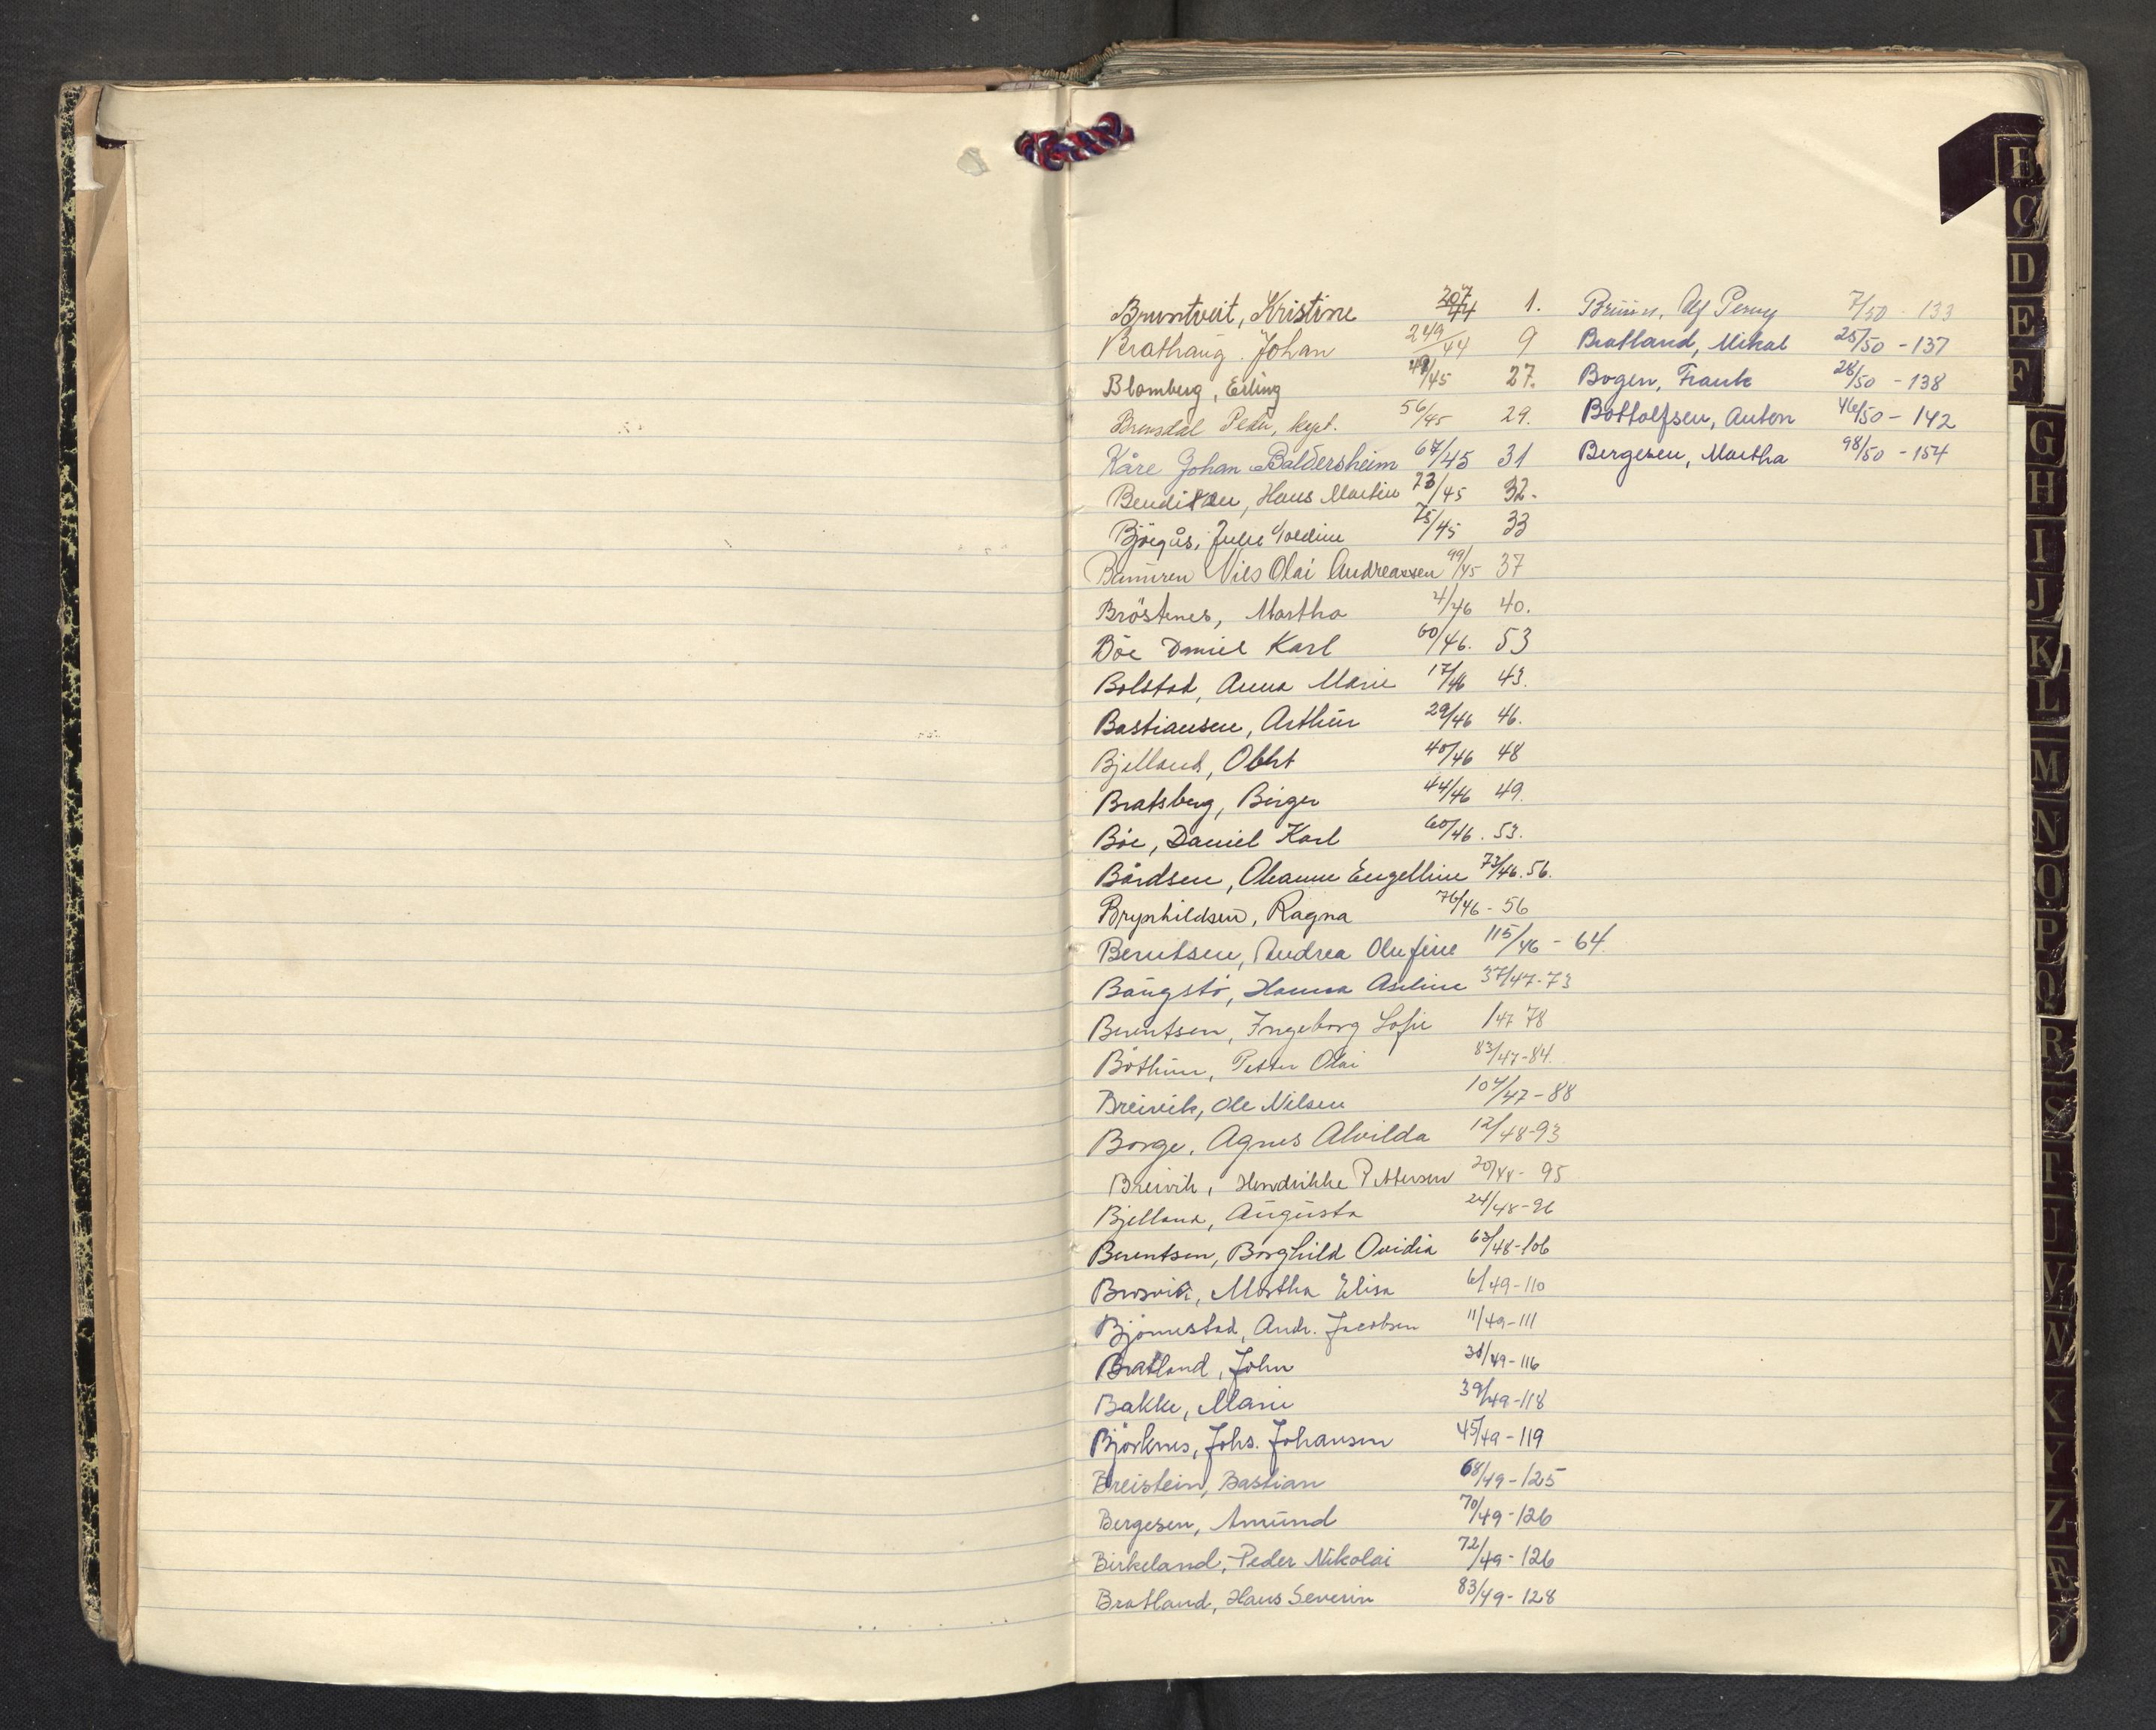 Bruntveit, Kristine 207/44 1.
Brathaug. Johan 249/44 9
Blomberg, Erling 49/45 27.
Brensdal Peder, kapt. 56/45 29.
Kåre Johan Baldersheim 67/45 31
Bendiksen, Hans Martin 73/45 32.
Bjørgås, Julie Voldine 75/45 33
Nils Olai Andreassen 99/45 37
Bröstenes, Martha 4/46 40.
Böe Daniel Karl 60/46. 53
Bolstad, Anna Marie 17/46 43.
Bastiansen, Arthur 29/46 46.
Bjelland, Obert 40/46 48
Bratsberg, Birger 44/46 49.
Böe, Daniel Karl 60/46. 53.
Bårdsen, Oleanne Engelline 73/46. 56.
Brynhildsen, Ragna 76/46 - 56
Berntsen, Andrea Olufine 115/46 - 64.
Baugstö, Hanna Aseline 37/47-73
Berentsen, Ingeborg Sofie /47 78
Böthun, Petter Olai 83/47-84.
Breivik, Ole Nilsen 104/47-88
Borge, Agnes Alvilda 12/48-93
Breivik, Hendrikke Pettersen 20/48- 95
Bjelland, Augusta 24/48-96
Berentsen, Borghild Ovidia 63/48-106
Brosvik, Martha Elisa 6/49-110
Björnestad, Andr. Jacobsen 11/49-111
Bratland, John 31/49-116
Bakke, Marie 39/49-118
Björknes, Johs. Johansen 45/49-119
Breistein, Bastian 68/49-125
Bergesen, Amund 70/49-126
Birkeland, Peder Nikolai 72/49-126
Bratland, Hans Severin 83/49-128
Bruun, Alf Percy 7/50 - 133
Bratland, Mikal 25/50 - 137
Bogen, Frank 28/50 - 138
Bottolfsen, Anton 46/50 - 142
Bergesen, Martha 98/50 - 154
B
C
D
E
F
G
H
I
J
K
L
M
N
O
P
Q
R
S
T
U
V
W
X
Y
Z
Æ
Ø